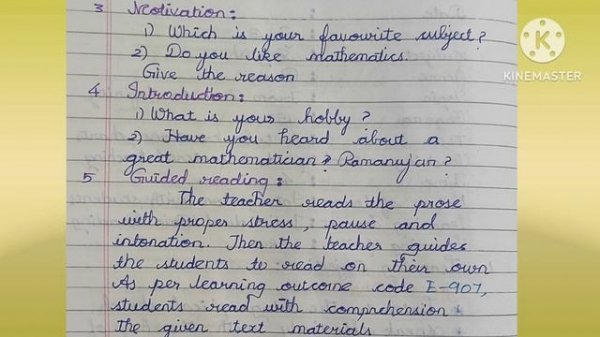 3 Motivation :
1) Which is your favourite subject?
2) Do you like mathematics.
Give the reason
4 Introduction :
1) What is your hobby ?
2) Have you heard about a
great mathematician? Ramanujan ?
5 Guided reading :
The teacher reads the prose
with proper stress, pause and
intonation. Then the teacher guides
the students to read on their own
As per learning outcome code E-907,
students read with comprehension
the given text materials
KINEMASTER